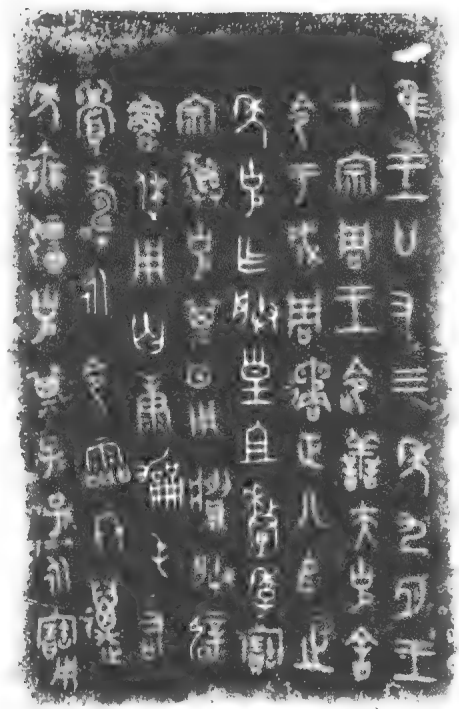 隹王廿又三年九月王
才宗周王令善夫克舍
令于成周遹正八𠂤之
年克乍朕皇且釐季寶
宗彝克其日用䵼朕辟
魯休用匄康勵屯右
眉壽永令霝冬邁
年無疆克其子=孫=永寶用